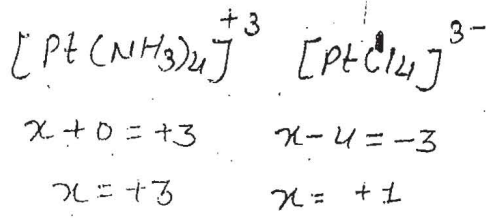 [Pt(NH3)4]+3 [PtCl4]3-
x+0=+3 x-4=-3
x=+3 x= +1